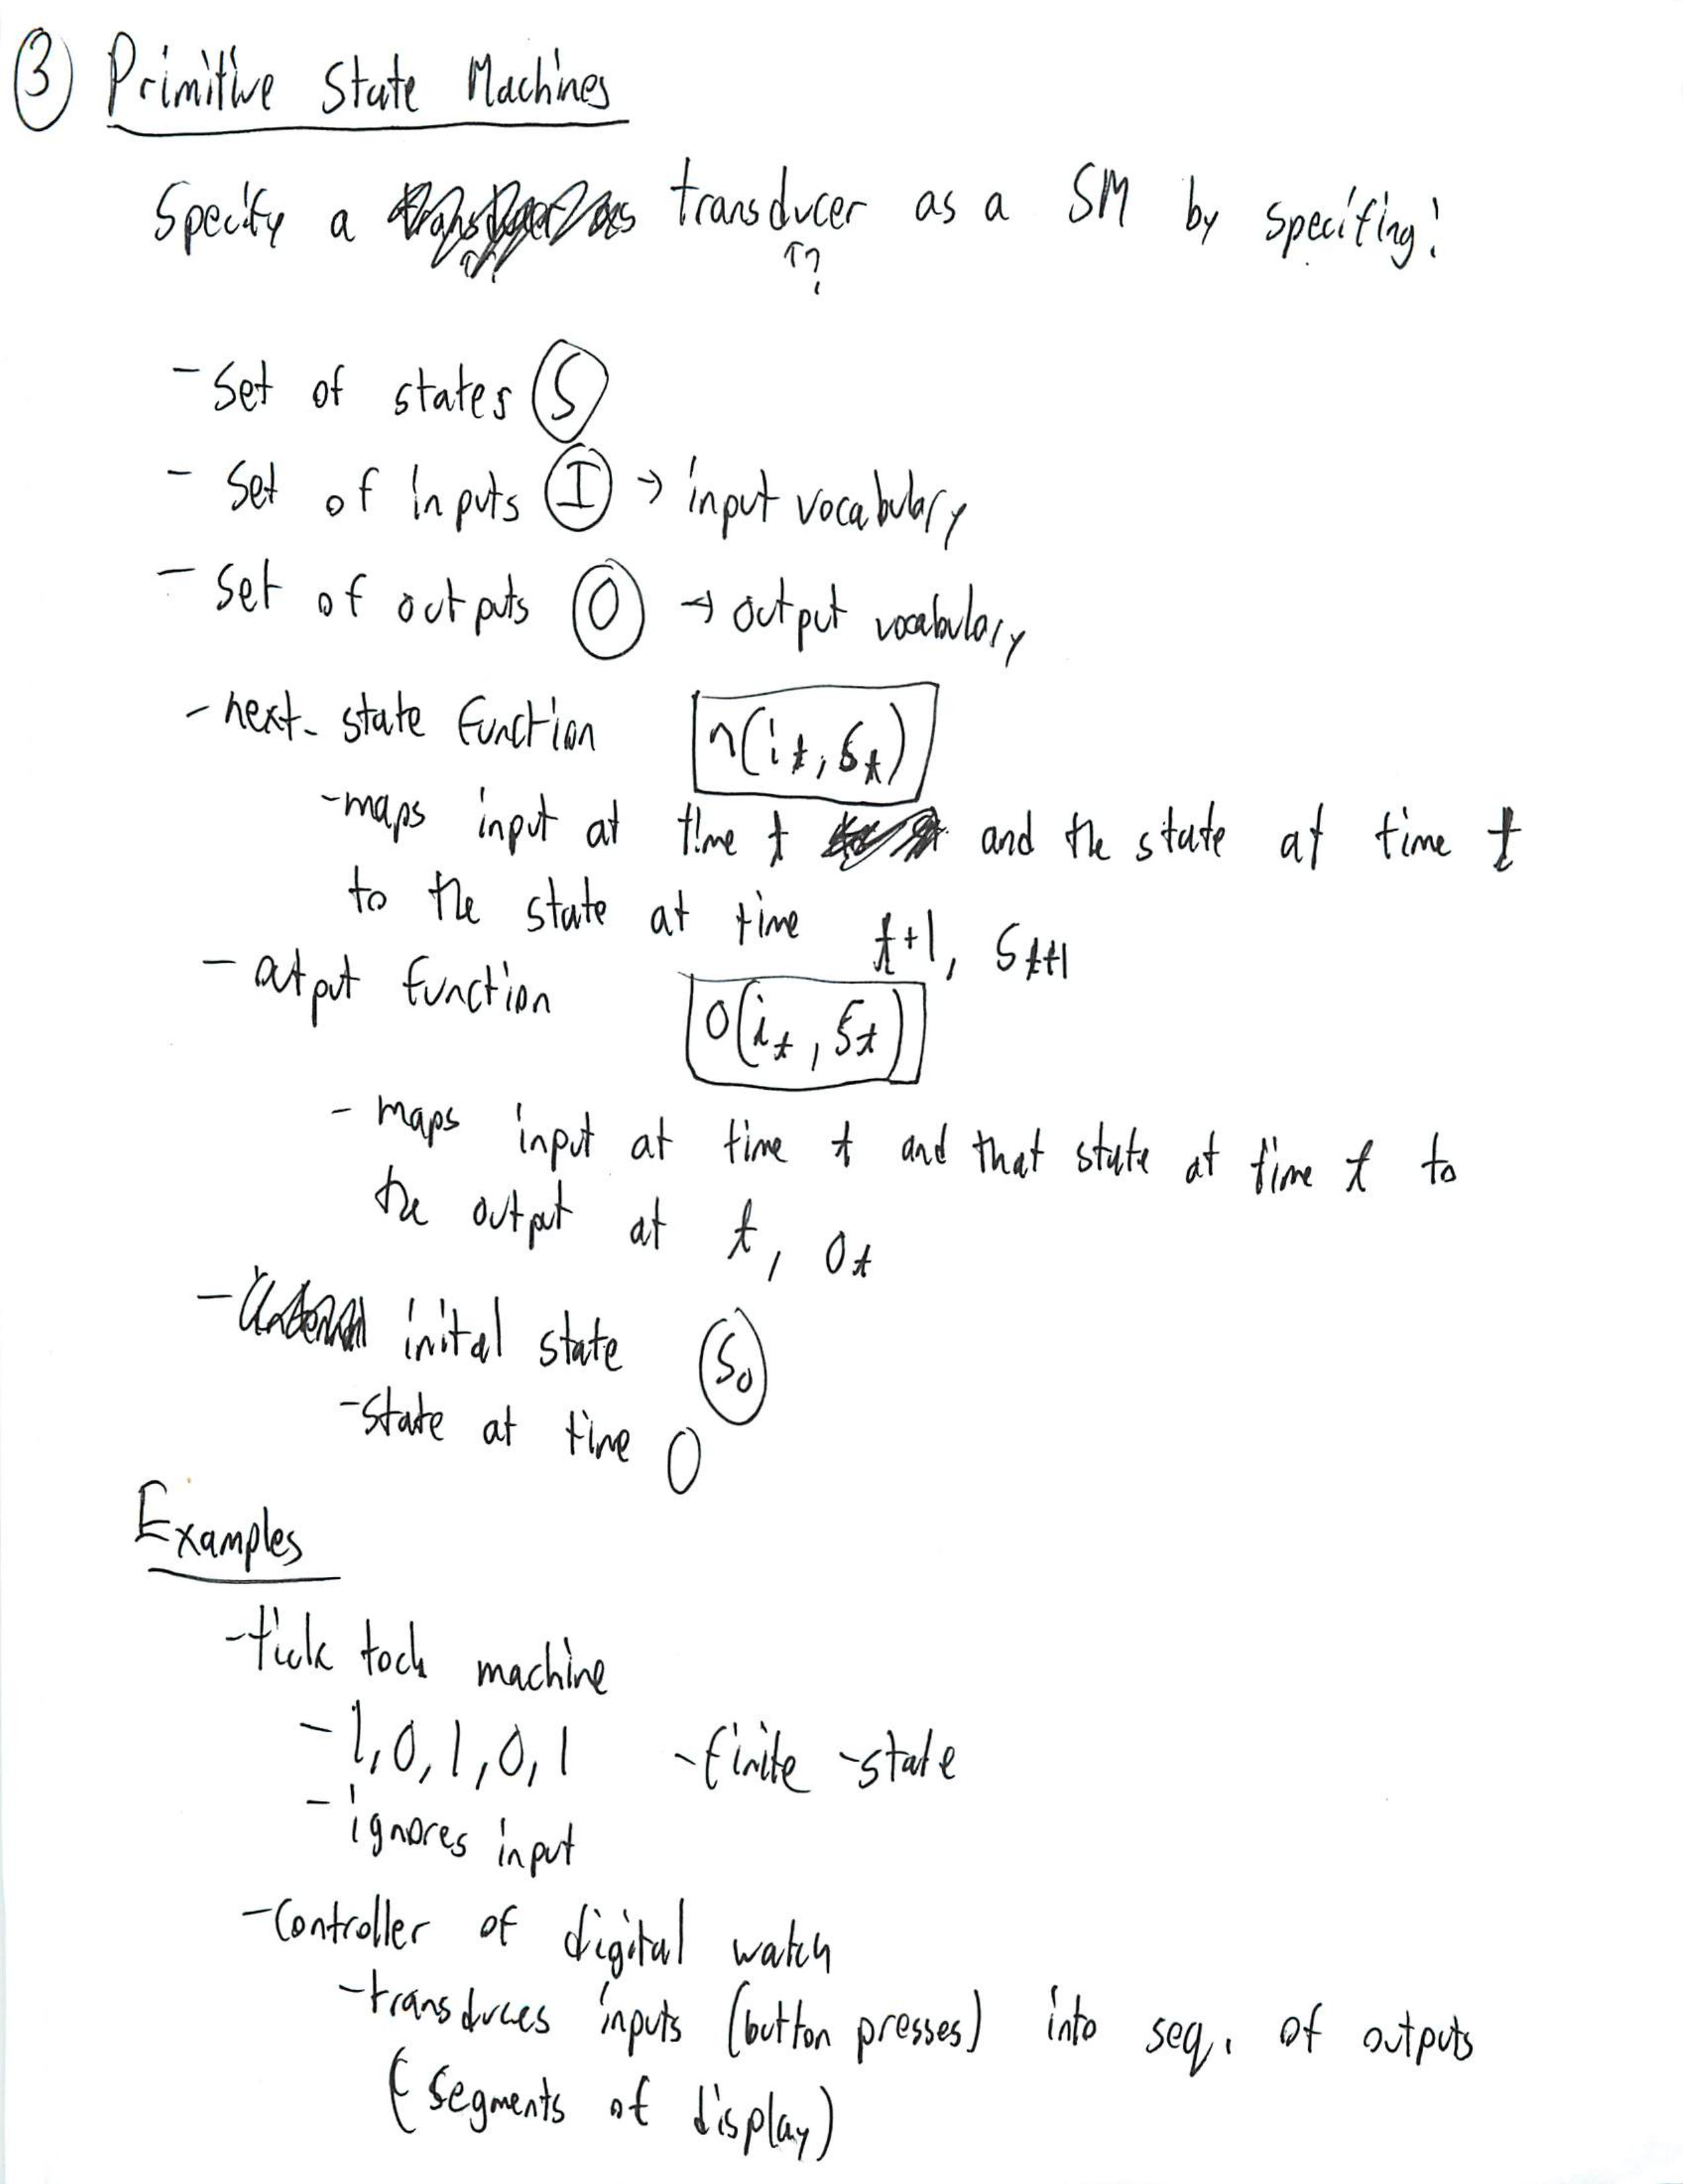 ③ Primitive State Machines
Specify a transducer as a SM by specifing:
↑?
- Set of states Ⓢ
- Set of inputs Ⓘ → input vocabulary
- Set of outputs Ⓞ → output vocabulary
- next-state function n(i_t, s_t)
- maps input at time t and the state at time t
to the state at time t+1, s_t+1
- output function o(i_t, s_t)
- maps input at time t and that state at time t to
the output at t, o_t
- inital state S_0
- state at time 0
Examples
- tick tock machine
- 1, 0, 1, 0, 1 - finite - state
- ignores input
- Controller of digital watch
- transduces inputs (button presses) into seq. of outputs
(segments of display)